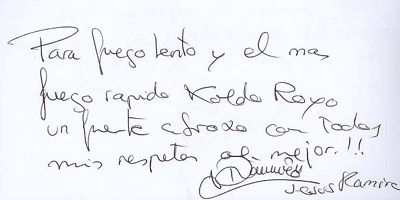 Para fuego lento y el mas
fuego rapido Koldo Royo
un fuerte abrazo con Todos
mis respetos al mejor.!!
Jesús Ramire